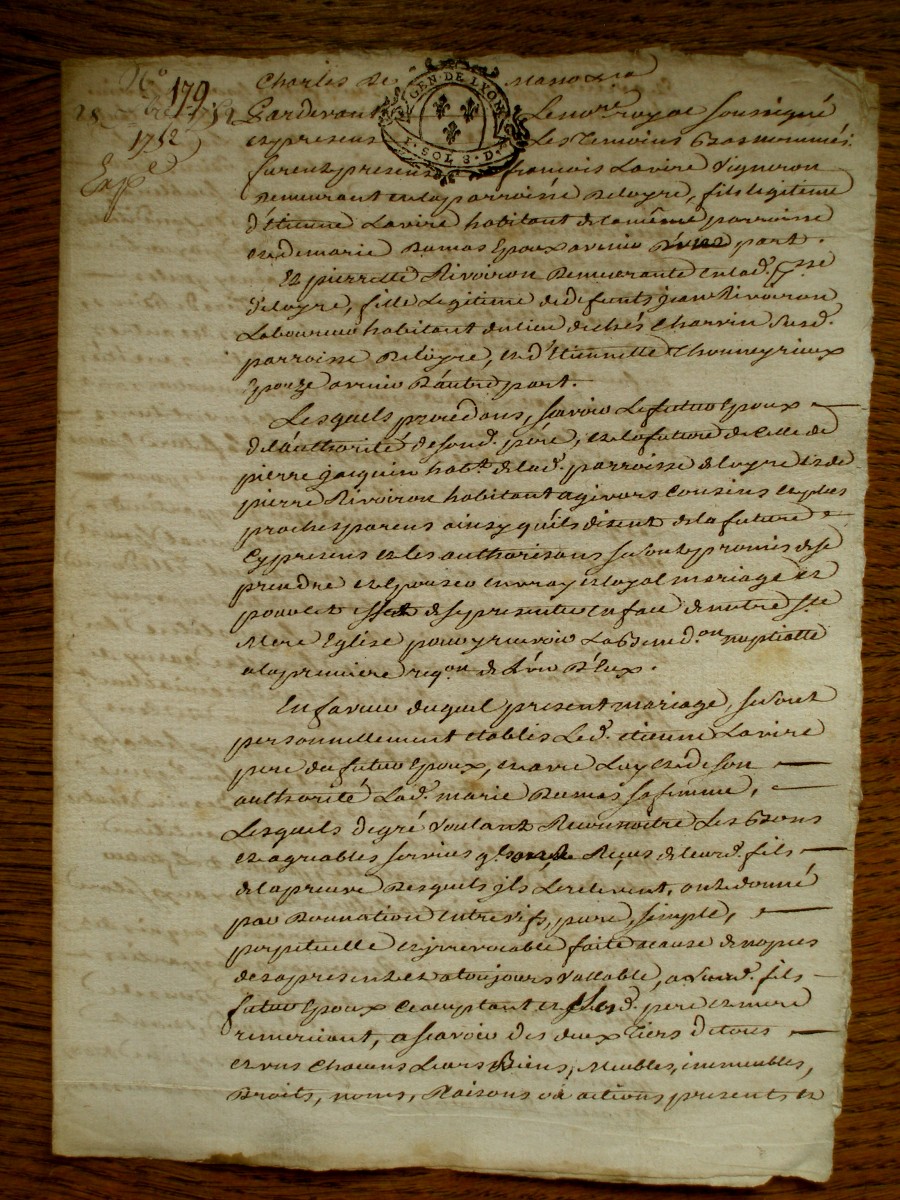 N° 179
1752
Exp.e
GEN. DE LYON
1. SOL 8. D.
Charles de
Pardevant Le no.re royal soussigné
et presens Les Temoins bas nommés
furent presens françois Lavire Vigneron
Demeurant en la parroisse De loyre, fils legitime
d'Etienne Lavire habitant de la même parroisse
et de marie Dumas Epoux avenir D'une part.
Et pierrette Rivoiron Demeurante en lad. p.sse
de loyre, fille Legitime de defunts jean Rivoiron
Laboureur habitant du lieu de chés Charvin Susd.
parroisse De loyre, et d'Etiennette Thomeyrieux
Epouze avenir D'autre part.
Lesquels procedans, savoir Le futur Epoux
de l'authorité de sond. pére, et la future de Celle de
pierre jacquin hab.t de lad. parroisse de loyre et de
pierre Rivoiron habitant a givors Cousins et plus
proches parens ainsy qu'ils disent de la future
Cy presens et les authorisans se sont promis de se
prendre et Epouser en vray et loyal mariage et
pour cet de se presenter en face de notre S.te
Mere Eglise pour y recevoir La Bened.on nuptialle
a la premiere req.on de L'un D'Eux.
En faveur duquel present mariage, se sont
personnellement etablis Led. etienne Lavire
pere du futur Epoux, et avec Luy et de son
authorité Lad. marie Dumas sa femme,
Lesquels de gré voulant Reconnoitre Les Bons
et agreables services Reçus de leurd. fils
de la preuve Desquels ils Le relevent, ont donné
par Donnation entre vifs, pure, simple,
perpetuelle et irrevocable faite a cause de nopces
des a present et a toujours vallable, a leurd. fils
futur Epoux acceptant et sesd. pere et mere
remerciant, a scavoir des deux tiers de tous
et uns Chacuns Leurs Biens, Meubles, immeubles,
Droits, noms, Raisons et actions presents et